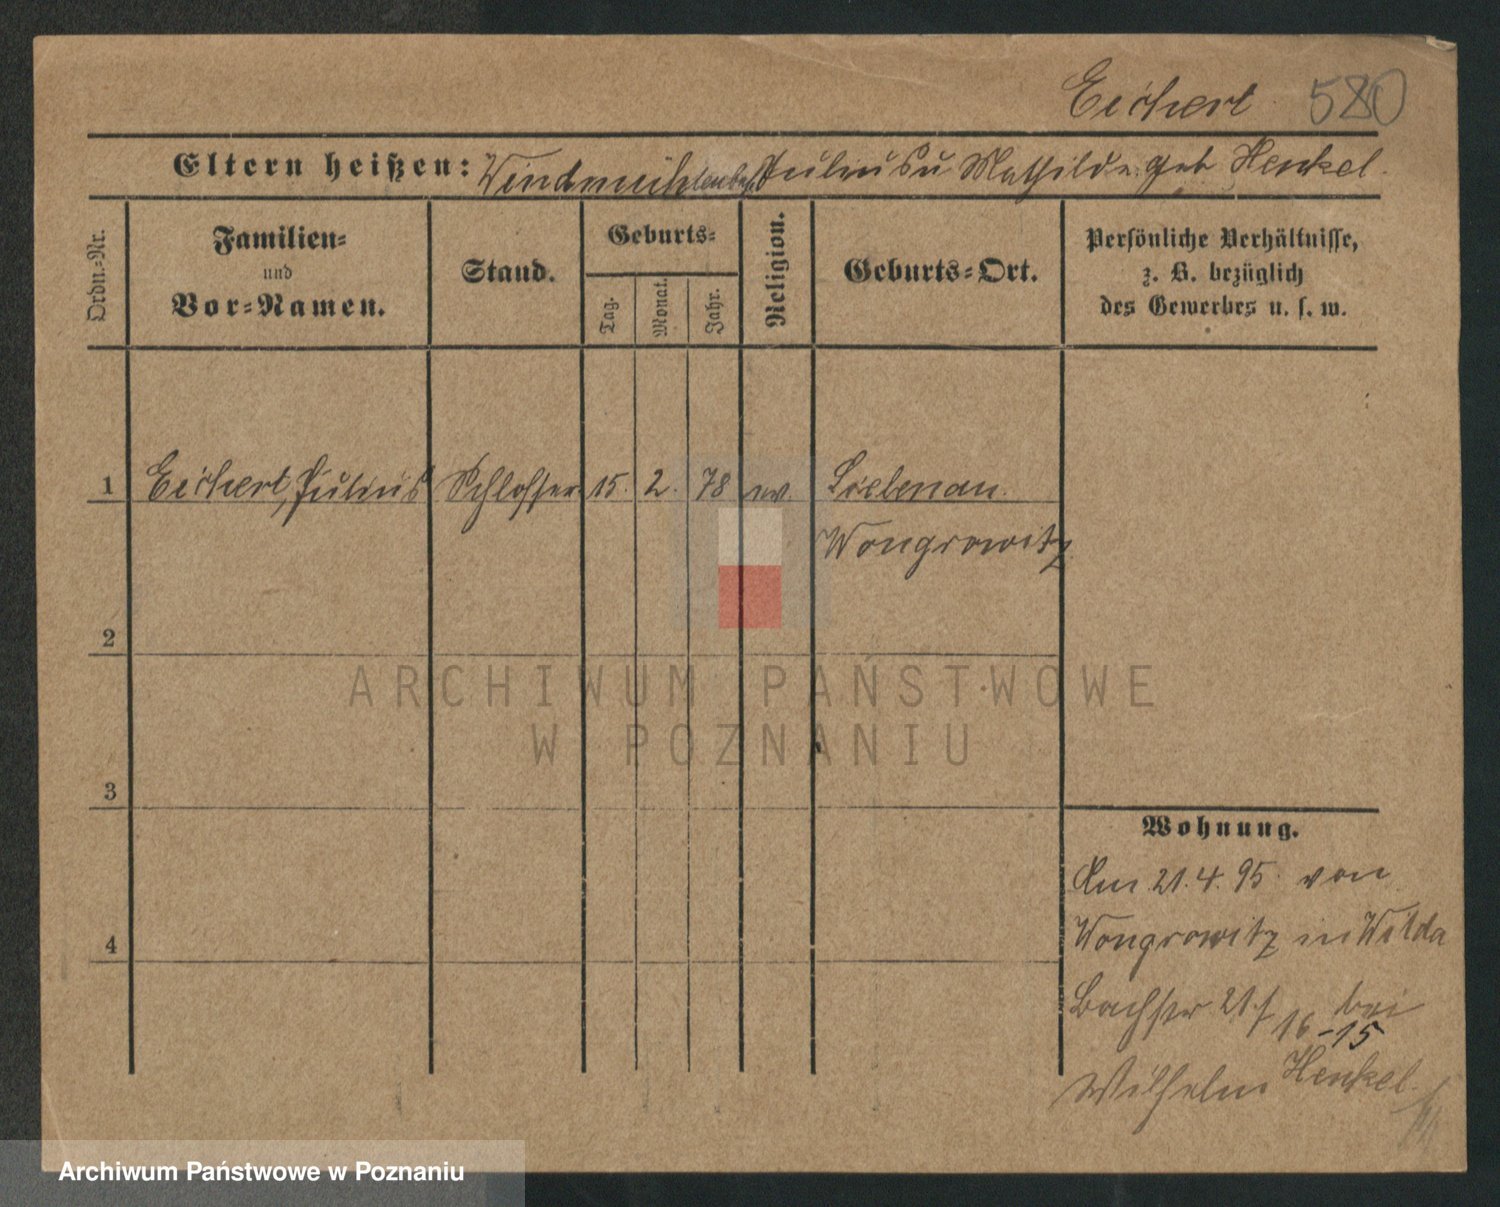 Eichert 580
Eltern heißen: Windmühlenbes. Julius u Mathilde geb Henkel.
Ordn.-Nr.
Familien-
und
Vor-Namen.
Stand.
Geburts-
Tag.
Monat.
Jahr.
Religion.
Geburts-Ort.
Persönliche Verhältnisse,
z. B. bezüglich
des Gewerbes u. s. w.
1 Eichert, Julius Schlosser 15. 2. 78 ev. Liebenau.
Wongrowitz
2
3
4
Wohnung.
Am 21.4.95. von
Wongrowitz in Wilda
Bachstr 21. / 16-15 bei
Wilhelm Henkel.
ARCHIWUM PAŃSTWOWE
W POZNANIU
Archiwum Państwowe w Poznaniu